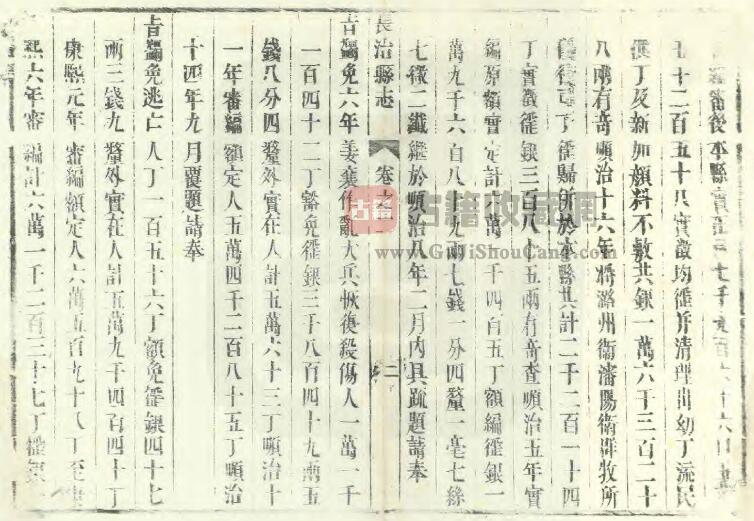 編審後本縣實
七十二百五十八實徵均徭并清理出幼丁流民
供丁及新加顔料不敷共銀一萬六千三百二十
八兩有奇順治十六年將潞州衛瀋陽衛群牧所
歸於本縣共計二千二百一十四
丁實徵徭銀三百八十五兩有奇查順治五年實
編原額會定計 萬 千四百五丁額編徭銀一
萬九千六百八十九兩七錢一分四釐一毫七絲
七微二纖繼於順治八年二月內具疏題請奉
長治縣志 卷之 二
旨蠲免六年姜襄作亂大兵恢復殺傷人一萬一千
一百四十二丁豁免徭銀三千八百四十九兩五
錢八分四釐外實在人計五萬六十三丁順治十
一年審編額定人五萬四千二百八十五丁順治
十四年九月覆題請奉
旨蠲免逃亡人丁一百五十六丁額免徭銀四十七
兩三錢九釐外實在人計五萬九千四百四十丁
康熙元年審編額定人六萬五百九十八丁至康
熙六年審編計六萬一千二百三十七丁徭銀
古籍
古籍收藏網
www.GuJiShouCang.com